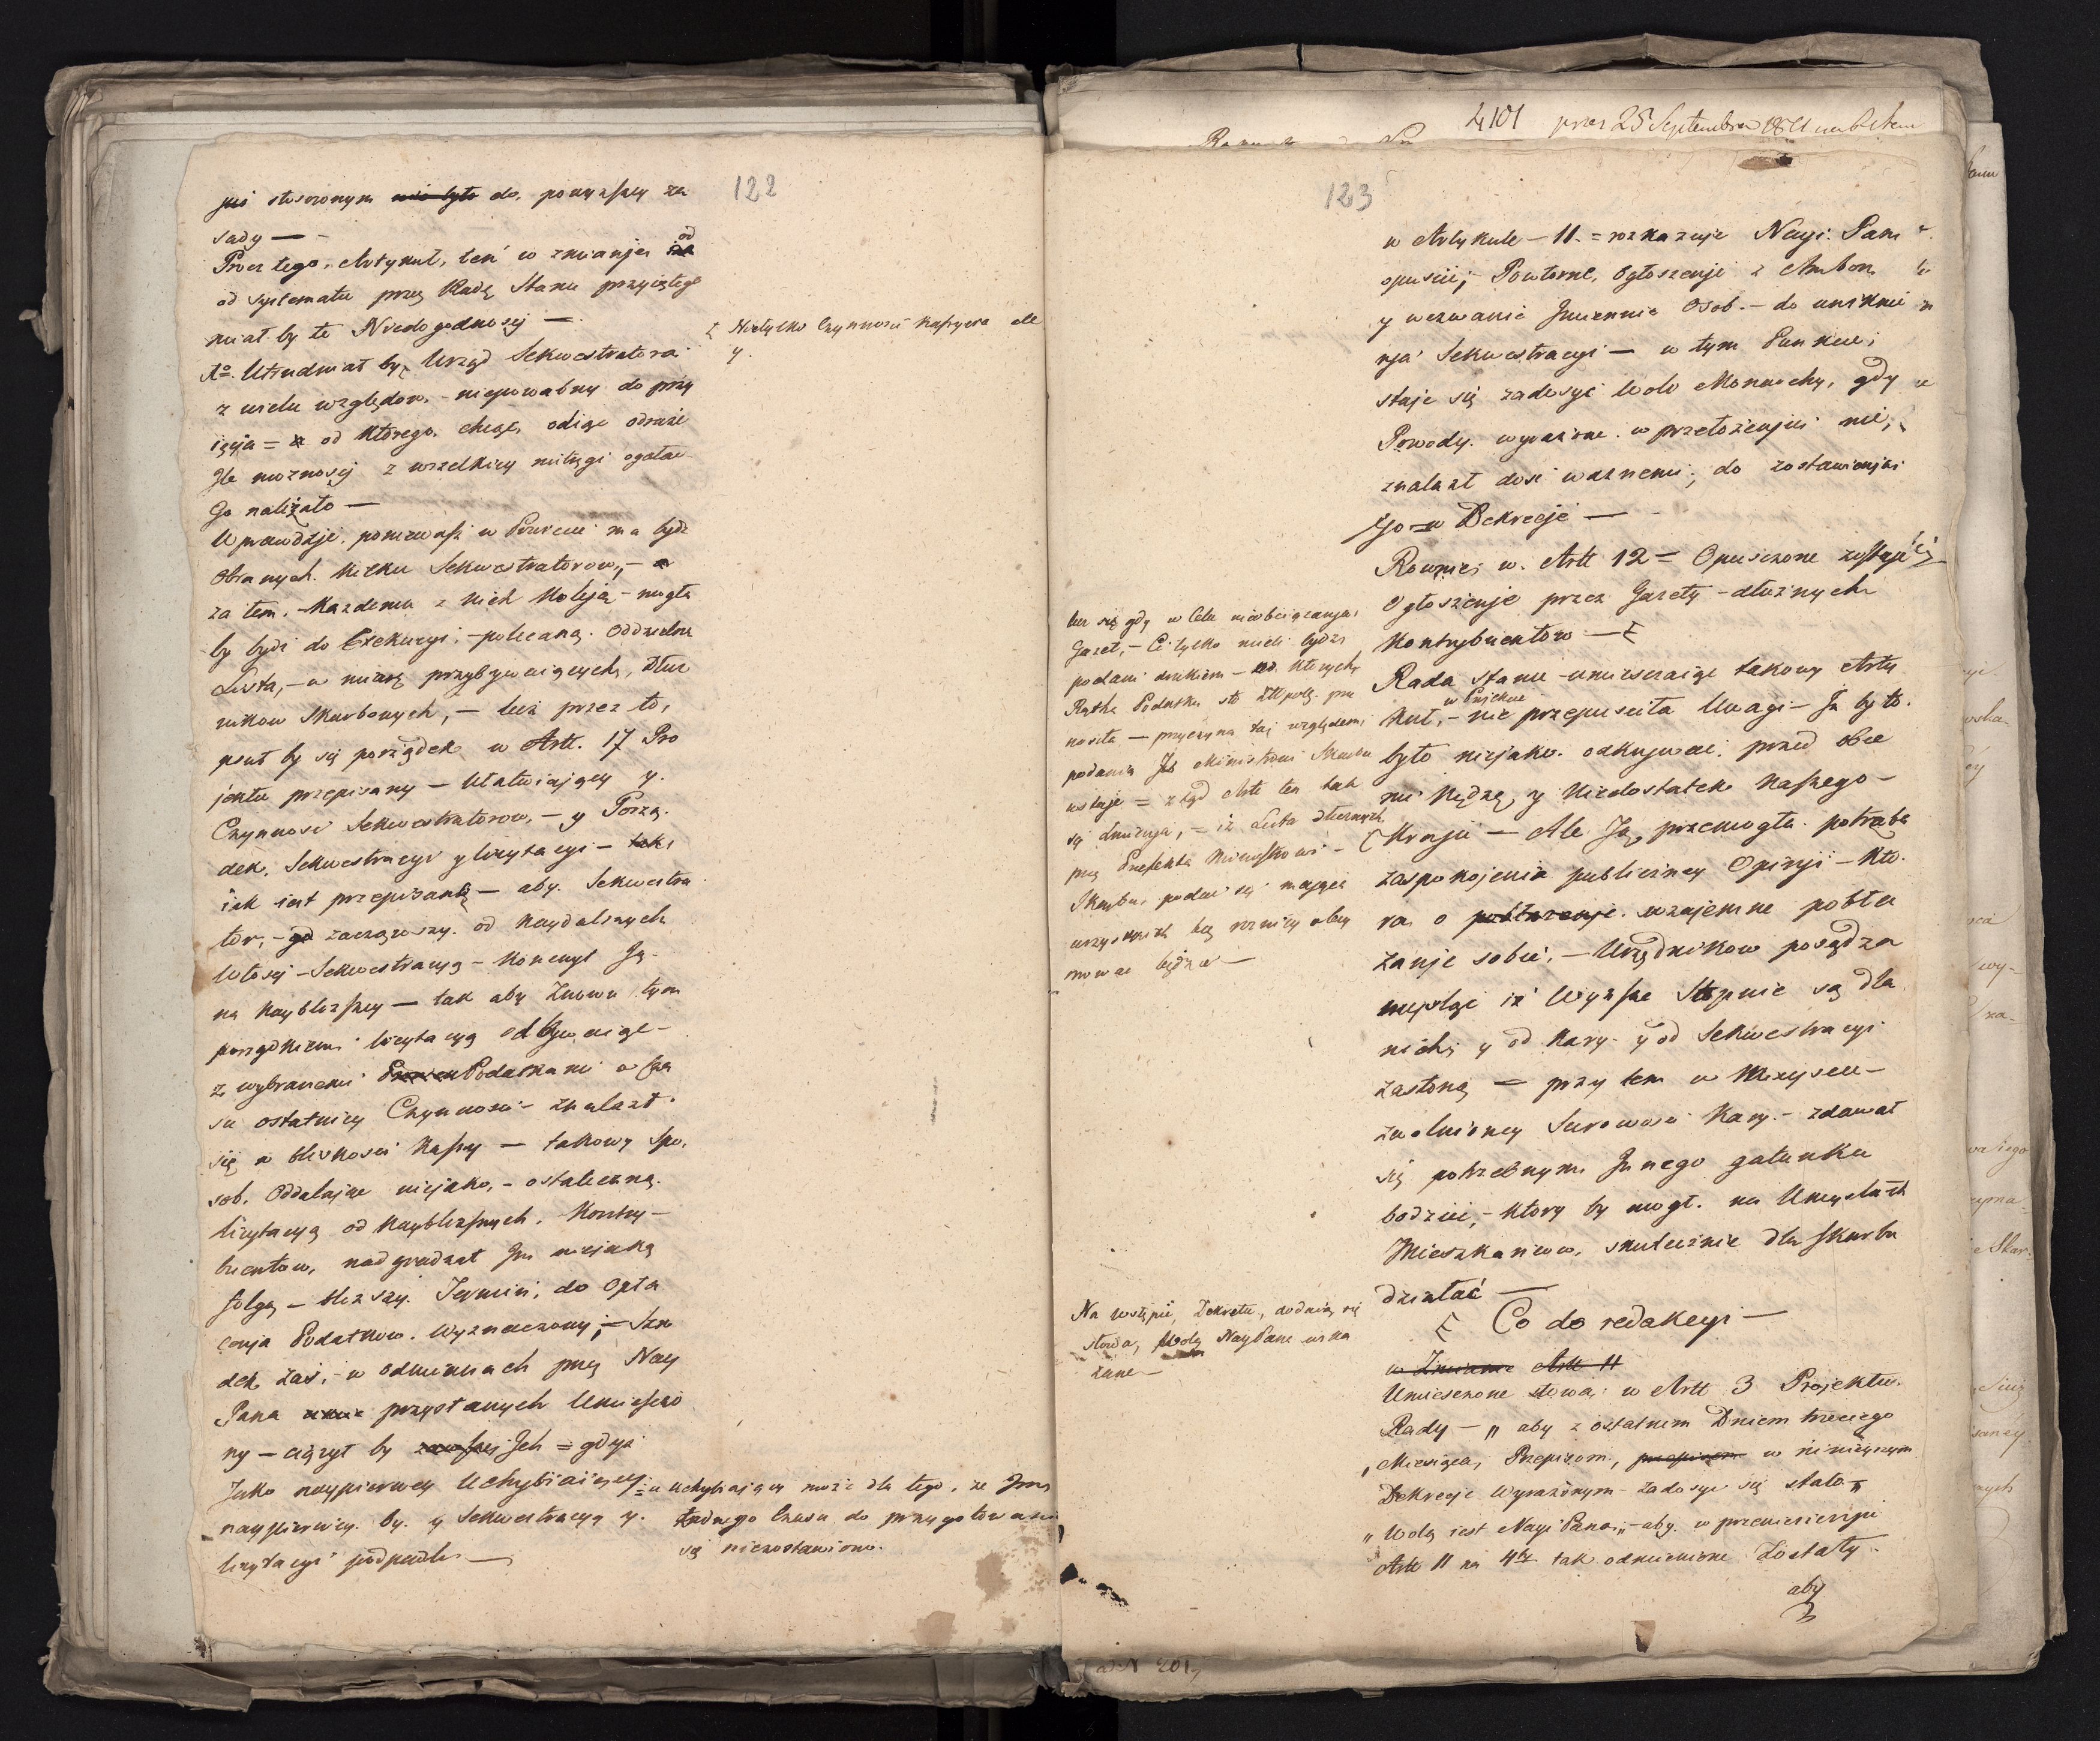 122
stosownym nie było do, powyższey za
sady —
Procz tego, Artykuł, ten w zmianie od
od systematu przez Radę Stanu przyiętego
miał by te Niedogodnosci —
1o. Utrudniał by, Urząd Sekwestratora
z wielu względow, - niepowabny do przy
ięcia = od ktorego, chcąc, odiąc odraże
Ile moznosci z wszelkiey mitręgi ogołac
Go należało —
Wprawdzie, ponieważ w Powiecie ma bydź
Obranych, kilku Sekwestratorow, -
za tem, - Kazdemu z nich Koleją - mogła
by bydź do Exekucyi, - polecaną, Oddzielna
Lista, - w miarę przybywaiących, Dłuż
nikow Skarbowych, - lecz przez to,
psuł by się porządek w Artt. 17 Pro
jektu przepisany — Ułatwiaiący y
Czynnosc Sekwestratorow, - y Porzą
dek, Sekwestracyi y licytacyi - tak,
iak iest przepisany — aby Sekwestra
tor, - zacząwszy od Naydalszych
Włosci - Sekwestracyą - Konczył Ją
na Naybliższey — tak aby Znowu tym
porządkiem licytacyą odbywaiąc -
z wybranemi Podatkami w cza
sie ostatniey Czynnosci - znalazł
się w bliskosci Kassy — takowy spo
sob, Oddalaiąc nieiako, - ostateczną
licytacyą od Naybliższych, Kontry-
buentow, nadgradzał Im nieiaką
folgą — bliższy Termin, do Opła
cenia Podatkow, Wyznaczony; - Szo
dek zaś, - w odmianach przez Nay
Pana przysłanych Umieszczo
ny — ciążył by zawsze Ich = gdyż
Jako naypierwey Uchybiaiący
naypierwey by y Sekwestracyą y
licytacyi podpadli —
Nietylko Czynnosci Kassyera ale
y.
= a uchybiaiący może dla tego, że Im
żadnego Czasu do przygotowani
się niezostawiono.
4101 przez 25 Septembra
123
w Artykule - 11. = rozkazuje Nayj: Pan
opuscic; - Powtorne, Ogłoszenie z Ambon
y wezwanie Imiennie Osob. - do uniknie
nia Sekwestracyi — w tym Punkcie,
staje się zadosyć Woli Monarchy, gdy
Powody wyrażone w przełożeniu nie
znalazł dosć waznemi, do zostawienia
Go w Dekrecie —
Rownież w Artt 12 = Opuszczone zostaje
Ogłoszenie przez Gazety - dłużnych
Kontrybuentow —
Rada stanu - umieszczaiąc takowy Arty
w Projekcie
kuł, - nie przepusciła Uwagi - Iż by to
było nieiako odkrywać, przed obce
mi Nędzę, y Niedostatek Naszego -
Kraju — Ale Ją, przemogła potrzeba
zaspokojenia publiczney Opinji - Kto
ra o pobłażanie wzajemne pobła
żanje sobie, - Urzędnikow posądza
iż Wyższe Stopnie są dla
nich, y od Kary y od Sekwestracyi
zasłoną — przy tem w Mieyscu -
zwolnioney Surowosci Kary - zdawał
się potrzebnym Innego gatunku
bodziec, - Ktory by mogł na Umysłach
Mieszkańcow, skutecznie dla Skarbu
działać —
Co do redakcyi —
w Zmianie Artt 11
Umieszczone słowa, w Artt 3 Projektu
Rady - „ aby z ostatnim Dniem trzeciego
„ Miesiąca, Przepisom, przepisem w ninieyszym
Dekrecie Wyrażonym - zadosyc się stało „
„ Wolą iest Nayj Pana, - aby w przemienieniu
Artt 11 na 4ty tak odmienione Zostały -
aby
się gdy w Celu nieobciążania,
Gazet, - Ci tylko mieli bydź
podani drukiem - od Ktorych
Ratha Podatku sto złt pols. prze
nosiła — przyczyna taż względem
podania Ministrowi Skarbu
ustaje = ztąd Artt ten tak
się zmienia, - iż Lista dłużnych
przez Prefekta Ministrowi -
Skarbu, podać się maiąca
wszystkich bez roznicy obey
mować będzie —
Na wstępie, Dekretu, dodaią się
słowa, Wolą NayPana wska
zane —